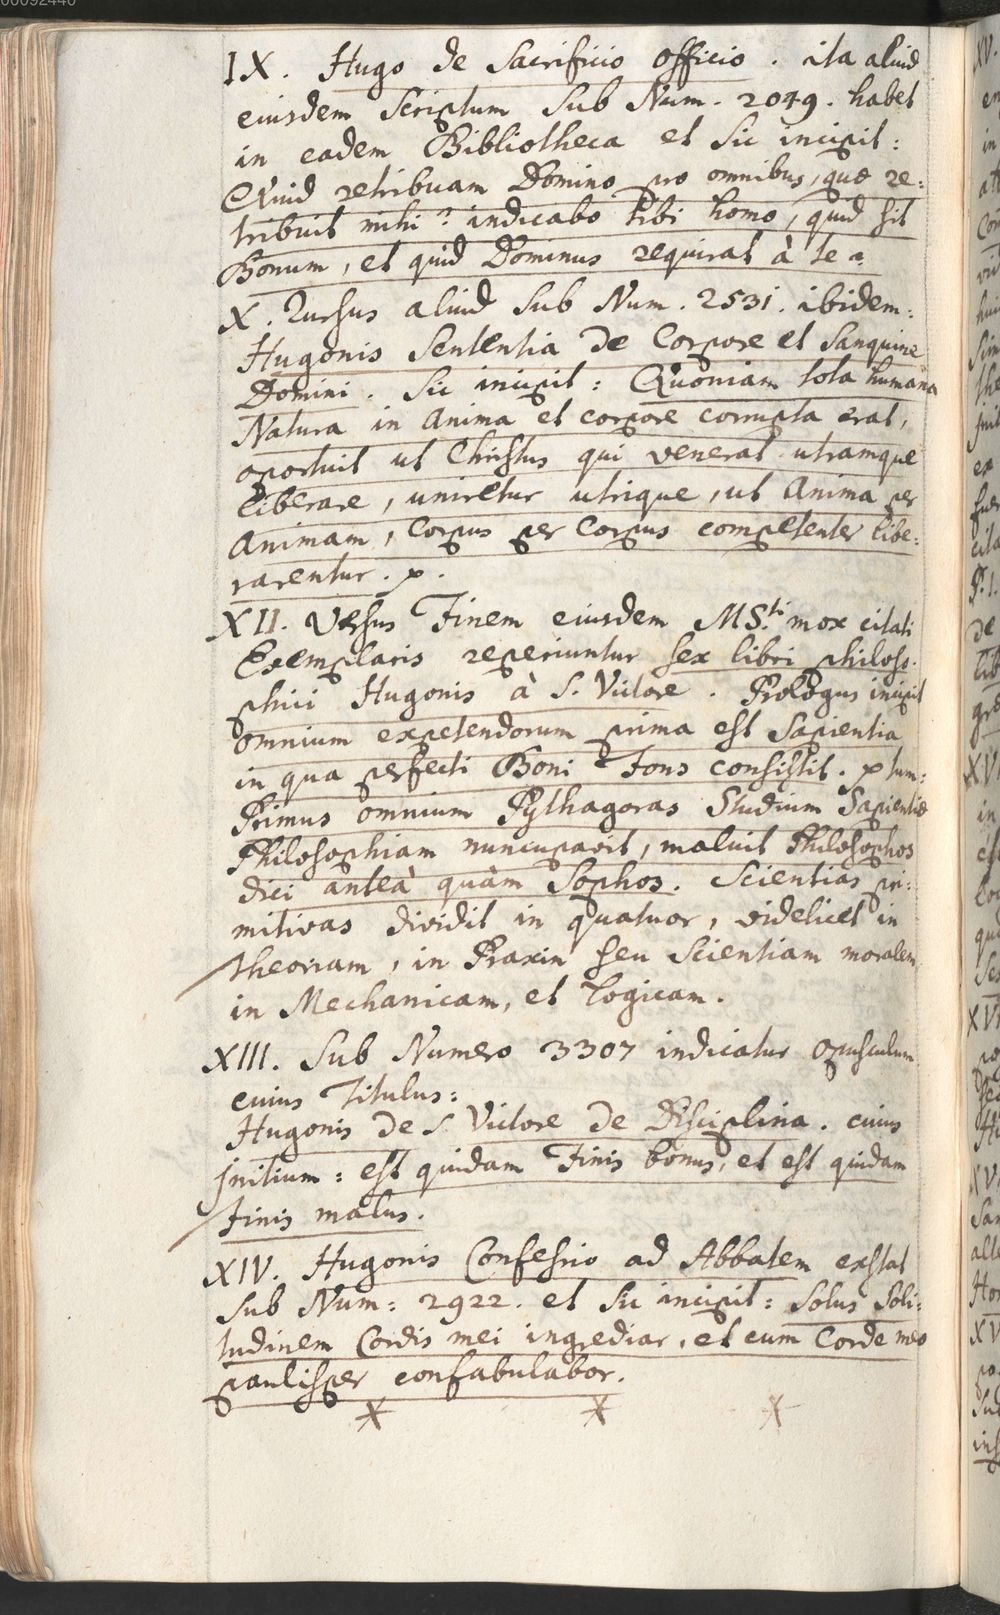 00092440
IX. Hugo de Sacrificio officio. ita aliud
eiusdem Scriptum Sub Num. 2049. habet
in eadem Bibliotheca et Sic incipit:
Quid retribuam Domino pro omnibus, quæ re:
tribuit mihi? indicabo tibi homo, quid sit
Bonum, et quid Dominus requirat à te
X. Rursus aliud Sub Num. 2531. ibidem:
Hugonis Sententia de Corpore et Sanguine
Domini. Sic incipit: Quoniam tota humana
Natura in Anima et corpore corrupta erat,
oportuit ut Christus qui venerat utramque
liberare, uniretur utrique, ut Anima per
Animam, Corpus per Corpus competenter libe:
rarentur. p.
XII. Versus Finem eiusdem MS.ti mox citati
Exemplaris reperiuntur sex libri philoso.
phici Hugonis à S. Victore. Prologus incipit
omnium expetendorum prima est Sapientia
in qua perfecti Boni Fons consistit. p tum:
Primus omnium Pythagoras Studium Sapientiæ
Philosophiam nuncupavit, maluit Philosophos
dici anteà quàm Sophos. Scientias pri:
mitivas dividit in quatuor, videlicet in
Theoriam, in Praxin seu Scientiam moralem
in Mechanicam, et Logicam.
XIII. Sub Numero 3307 indicatur opusculum
cuius Titulus:
Hugonis de S. Victore de Disciplina. cuius
initium: est quidam Finis bonus, et est quidam
Finis malus.
XIV. Hugonis Confessio ad Abbatem exstat
Sub Num: 2922. et Sic incipit: Solus Soli:
tudinem Cordis mei ingrediar, et cum Corde meo
paulisper confabulabor.